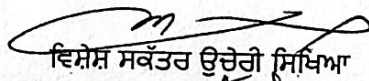 ਵਿਸ਼ੇਸ਼ ਸਕੱਤਰ ਉਚੇਰੀ ਸਿਖਿਆ